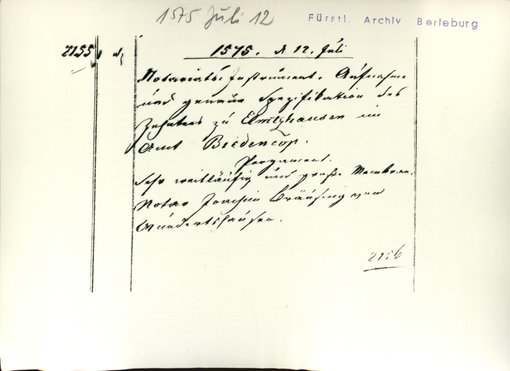 1575 Juli 12
Fürstl. Archiv Berleburg
2155
1575. d 12. Juli
Notariats Instrument. Aufnahme
und genaue Spezifikation des
Zehntens zu Elmshausen im
Amt Biedencop.
Pergament.
Sehr weitläufig und große Membran.
Notar Joachim von
2156